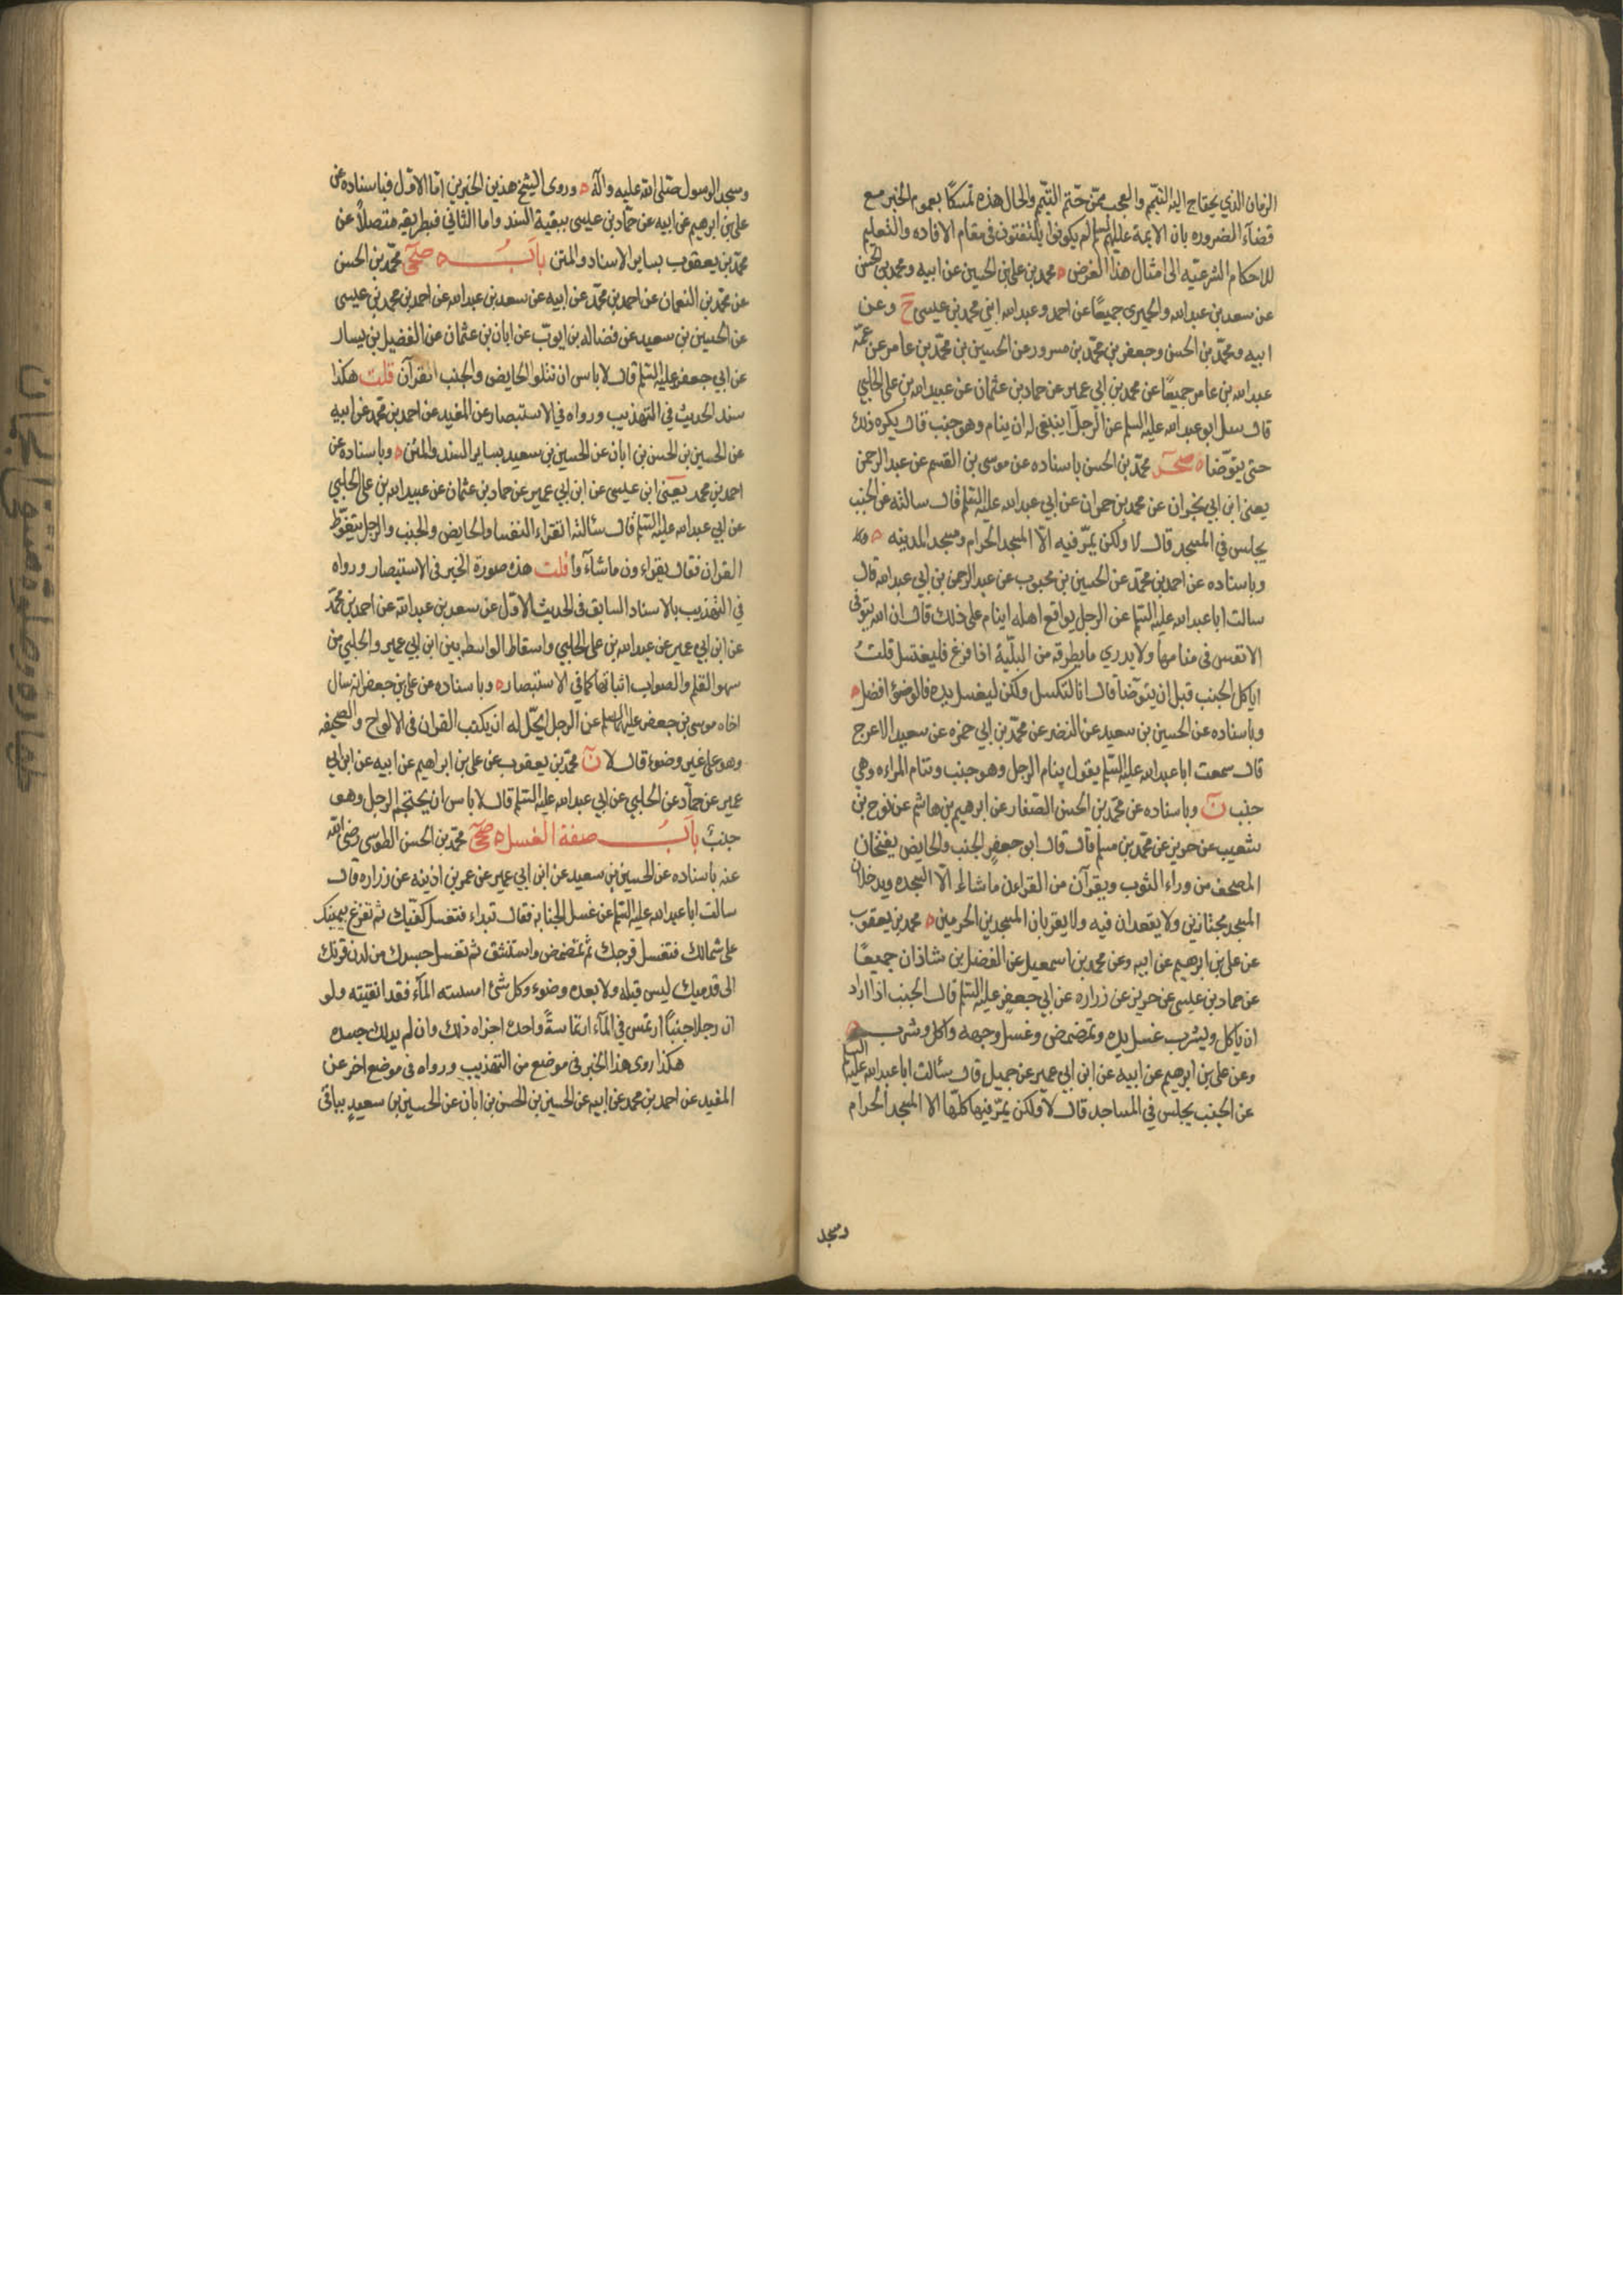 الزمان الذي يحتاج اليه التيمم والعجب ممن حتم التيمم والحال هذه تمسكا بعموم الخبر مع
قضاء الضروره بان الايمة عليهم السلم لم يكونوا يلتفتون في مقام الافاده والتعليم
للاحكام الشرعيه الى امثال هذا الغرض ه محمد بن علي بن الحسين عن ابيه ومحمد بن الحسن
عن سعد بن عبد الله والحميري جميعا عن احمد وعبد الله ابني محمد بن عيسى ح وعن
ابيه ومحمد بن الحسن وجعفر بن محمد بن مسرور عن الحسين بن محمد بن عامر عن عمه
عبد الله بن عامر جميعا عن محمد بن ابي عمير عن حماد بن عثمان عن عبيد الله بن علي الحلبي
قال سئل ابو عبد الله عليه السلم عن الرجل اينبغي له ان ينام وهو جنب قال يكره ذلك
حتى يتوضا ه صحر محمد بن الحسن باسناده عن موسى بن القسم عن عبد الرحمن
يعني ابن ابي نجران عن محمد بن حمران عن ابي عبد الله عليه السلم قال سالته عن الجنب
يجلس في المسجد قال لا ولكن يمر فيه الا المسجد الحرام ومسجد المدينه ه
وباسناده عن احمد بن محمد عن الحسين بن محبوب عن عبد الرحمن بن ابي عبد الله قال
سالت ابا عبد الله عليه السلم عن الرجل يواقع اهله اينام على ذلك قال ان الله يتوفى
الانفس في منامها ولا يدري ما يطرقه من البلية اذا فرغ فليغتسل قلت
اياكل الجنب قبل ان يتوضأ قال انا لنكسل ولكن ليغسل يده فالوضوء افضل ه
وباسناده عن الحسين بن سعيد عن النضر عن محمد بن ابي حمزه عن سعيد الاعرج
قال سمعت ابا عبد الله عليه السلم يقول ينام الرجل وهو جنب وتنام المراءه وهي
جنب ن وباسناده عن محمد بن الحسن الصفار عن ابرهيم بن هاشم عن نوح بن
شعيب عن حريز عن محمد بن مسلم قال قال ابو جعفر الجنب والحايض يفتحان
المصحف من وراء الثوب ويقرآن من القراءن ما شاءا الا السجده ويدخلان
المسجد مجتازين ولا يقعدان فيه ولا يقربان المسجدين الحرمين ه محمد بن يعقوب
عن علي بن ابرهيم عن ابيه وعن محمد بن اسمعيل عن الفضل بن شاذان جميعا
عن حماد بن عيسى عن حريز عن زراره عن ابي جعفر عليه السلم قال الجنب اذا اراد
ان ياكل ويشرب غسل يده وتمضمض وغسل وجهه واكل وشرب ه
وعن علي بن ابرهيم عن ابيه عن ابن ابي عمير عن جميل قال سئالت ابا عبد الله عليه السلم
عن الجنب يجلس في المساجد قال لا ولكن يمر فيها كلها الا المسجد الحرام
ومسجد
ومسجد الرسول صلى الله عليه وآله ه وروى الشيخ هذين الخبرين اما الاول فباسناده عن
علي بن ابرهيم عن ابيه عن حماد بن عيسى ببقية السند واما الثاني فبطريقه متصلا عن
محمد بن يعقوب بساير الاسناد والمتن باب ه صحي محمد بن الحسن
عن محمد بن النعمان عن احمد بن محمد عن ابيه عن سعد بن عبد الله عن احمد بن محمد بن عيسى
عن الحسين بن سعيد عن فضاله بن ايوب عن ابان بن عثمان عن الفضيل بن يسار
عن ابي جعفر عليه السلم قال لا باس ان تتلوا الحايض والجنب القرآن قلت هكذا
سند الحديث في التهذيب ورواه في الاستبصار عن المفيد عن احمد بن محمد عن ابيه
عن الحسين بن الحسن بن ابان عن الحسين بن سعيد بساير السند والمتن ه وباسناده عن
احمد بن محمد يعني ابن عيسى عن ابن ابي عمير عن حماد بن عثمان عن عبيد الله بن علي الحلبي
عن ابي عبد الله عليه السلم قال سئالته اتقراء النفسا والحايض والجنب والرجل يتغوط
القران فقال يقراءون ما شاؤا قلت هذه صورة الخبر في الاستبصار ورواه
في التهذيب بالاسناد السابق في الحديث الاول عن سعد بن عبد الله عن احمد بن محمد
عن ابن ابي عمير عن عبيد الله بن علي الحلبي واسقاط الواسطه بين ابن ابي عمير والحلبي من
سهو القلم والصواب اثباتها كما في الاستبصار ه وباسناده عن علي بن جعفر انه سال
اخاه موسى بن جعفر عليه السلم عن الرجل ايحل له ان يكتب القران في الالواح والصحيفه
وهو على غير وضوء قال لا ن محمد بن يعقوب عن علي بن ابراهيم عن ابيه عن ابن ابي
عمير عن حماد عن الحلبي عن ابي عبد الله عليه السلم قال لا باس ان يحتجم الرجل وهو
جنب باب صفة الغسل ه صحي محمد بن الحسن الطوسي رضي الله
عنه باسناده عن الحسين بن سعيد عن ابن ابي عمير عن عمر بن اذينه عن زراره قال
سالت ابا عبد الله عليه السلم عن غسل الجنابه فقال تبداء فتغسل كفيك ثم تفرغ بيمينك
على شمالك فتغسل فرجك ثم تمضمض واستنشق ثم تغسل جسدك من لدن قرنك
الى قدميك ليس قبله ولا بعده وضوء وكل شيء امسسته الماء فقد انقيته ولو
ان رجلا جنبا ارتمس في الماء ارتماسة واحدة اجزاه ذلك وان لم يدلك جسده
هكذا روى هذا الخبر في موضع من التهذيب ورواه في موضع اخر عن
المفيد عن احمد بن محمد عن ابيه عن الحسين بن الحسن بن ابان عن الحسين بن سعيد بباقي